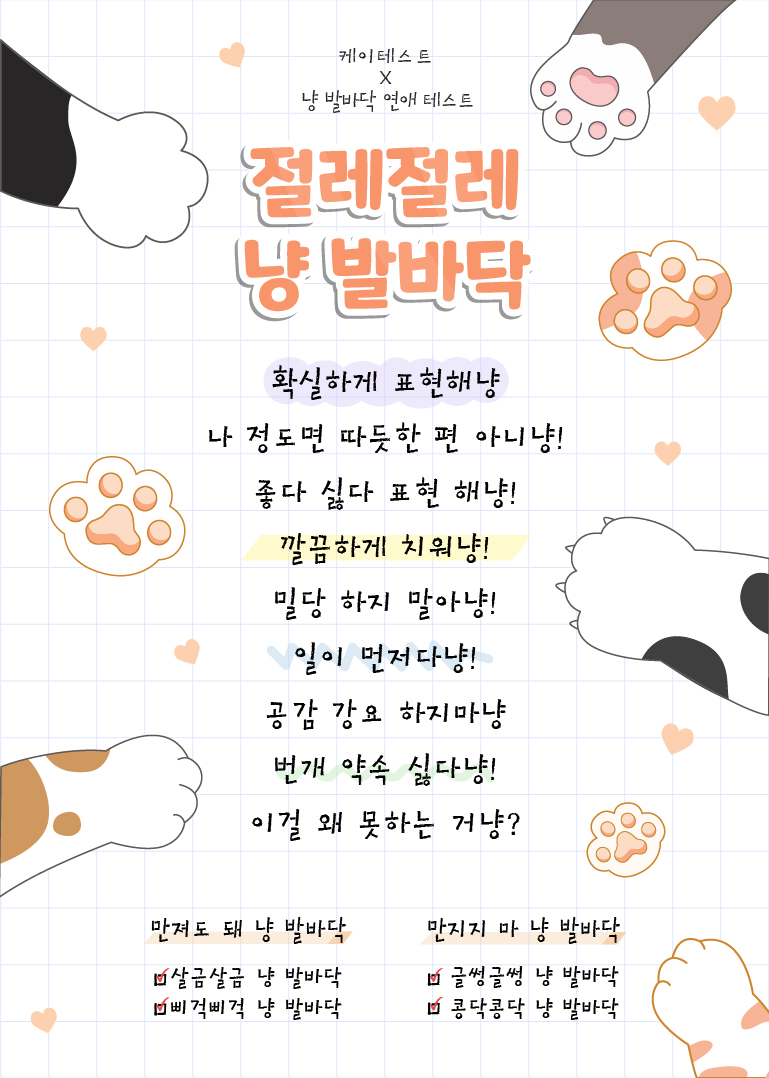 케이테스트
X
냥 발바닥 연애 테스트
절레절레
냥 발바닥
확실하게 표현해냥
나 정도면 따듯한 편 아니냥!
좋다 싫다 표현 해냥!
깔끔하게 치워냥!
밀당 하지 말아냥!
일이 먼저다냥!
공감 강요 하지마냥
번개 약속 싫다냥!
이걸 왜 못하는 거냥?
만져도 돼 냥 발바닥
살금살금 냥 발바닥
삐걱삐걱 냥 발바닥
만지지 마 냥 발바닥
글썽글썽 냥 발바닥
콩닥콩닥 냥 발바닥